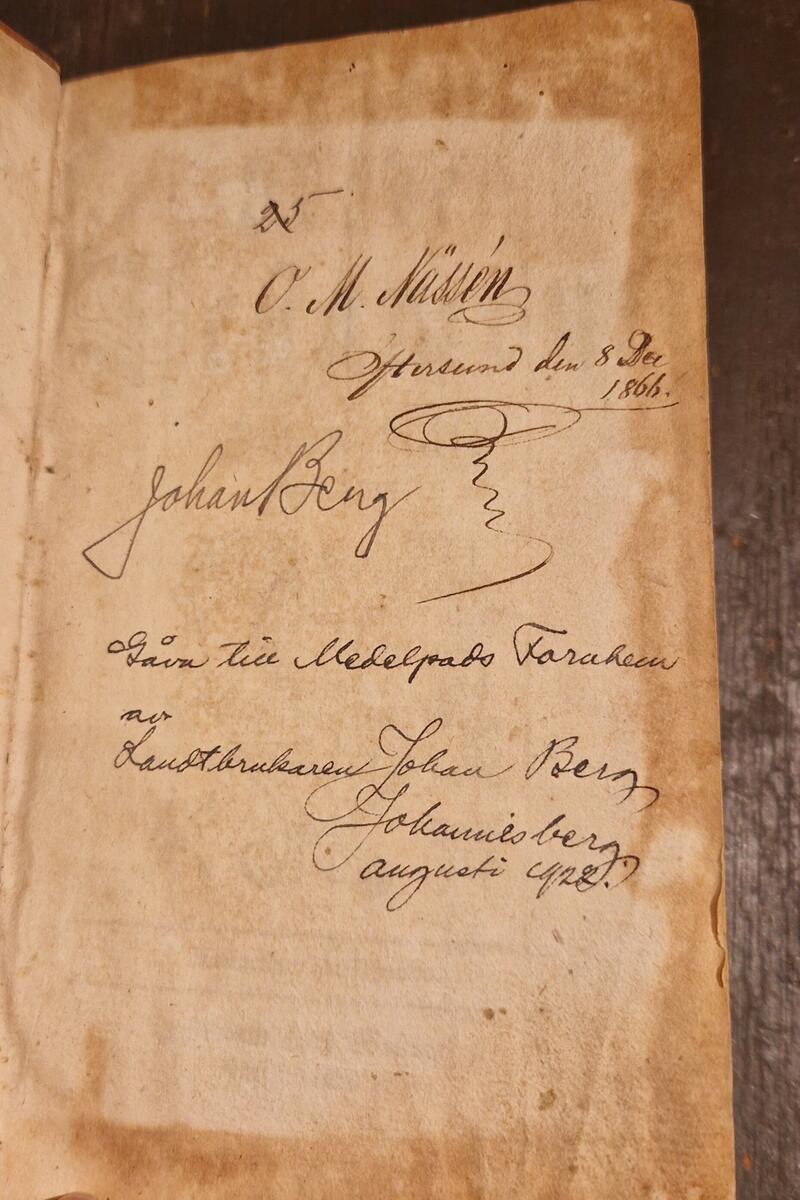 25
O. M. Nässén
Östersund den 8 Dec
1866.
Johan Berg
Gåva till Medelpads Fornhem
av
Landtbrukaren Johan Berg
Johannisberg
augusti 1922.